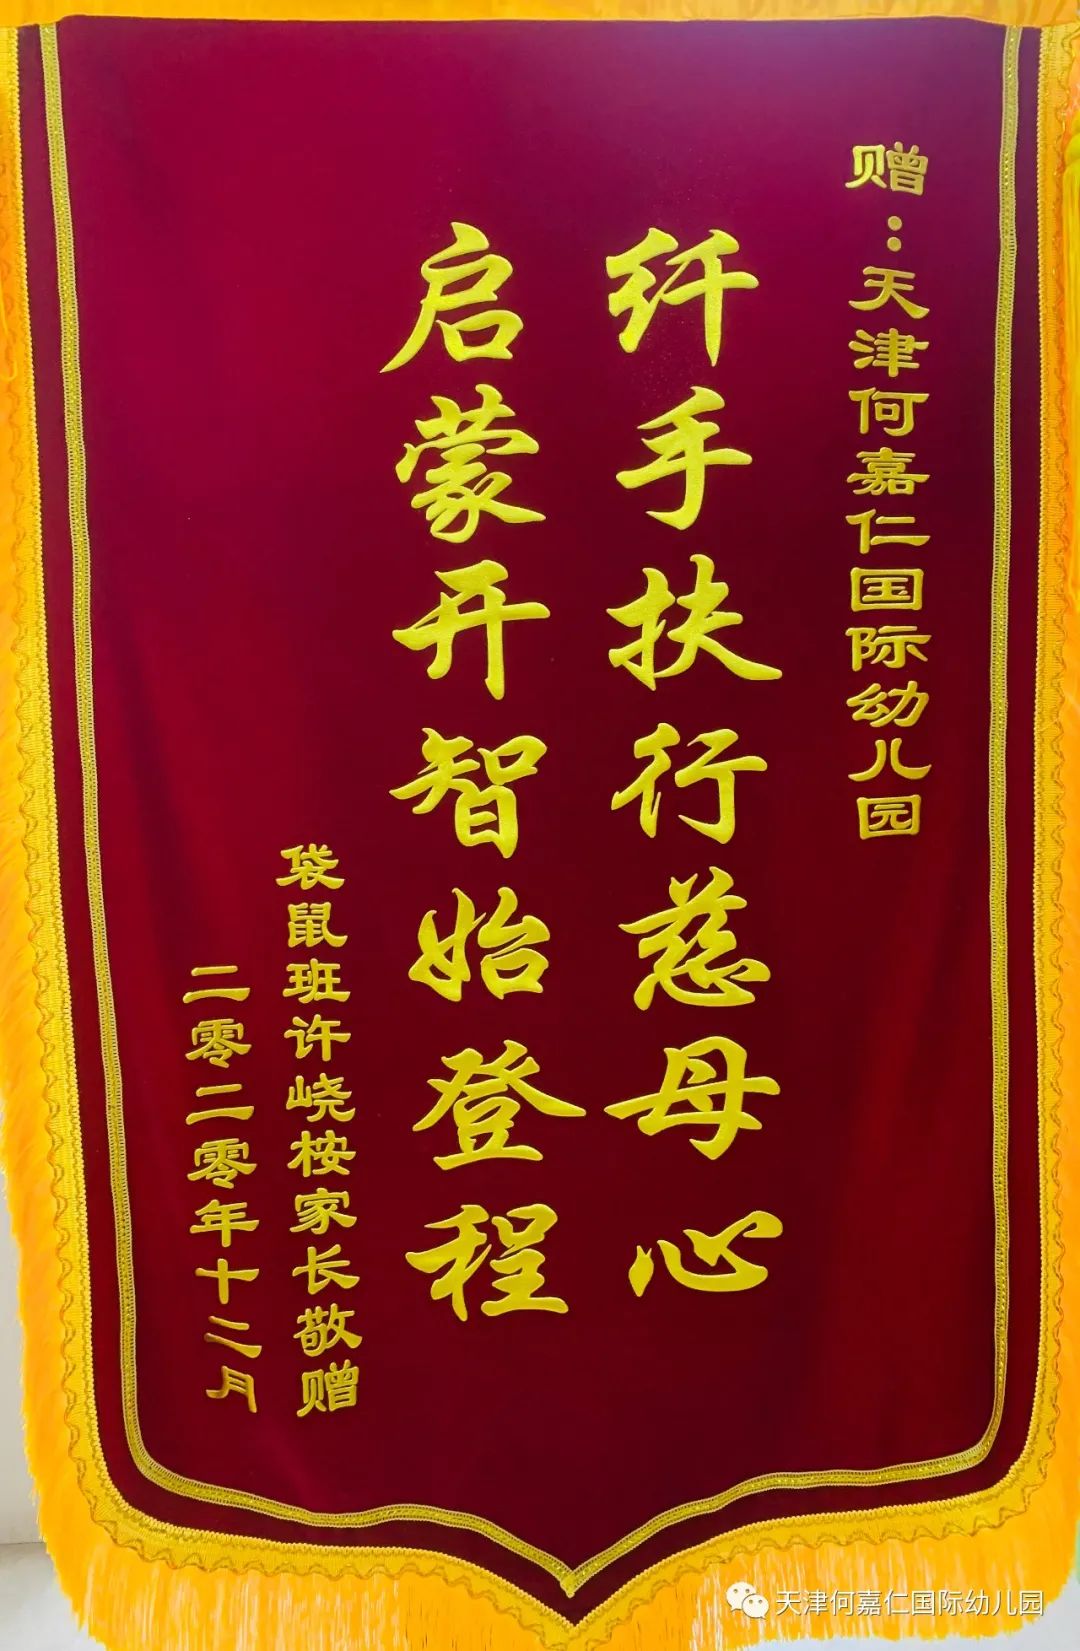 赠：天津何嘉仁国际幼儿园
纤手扶行慈母心
启蒙开智始登程
袋鼠班许峣桉家长敬赠
二零二零年十二月
天津何嘉仁国际幼儿园